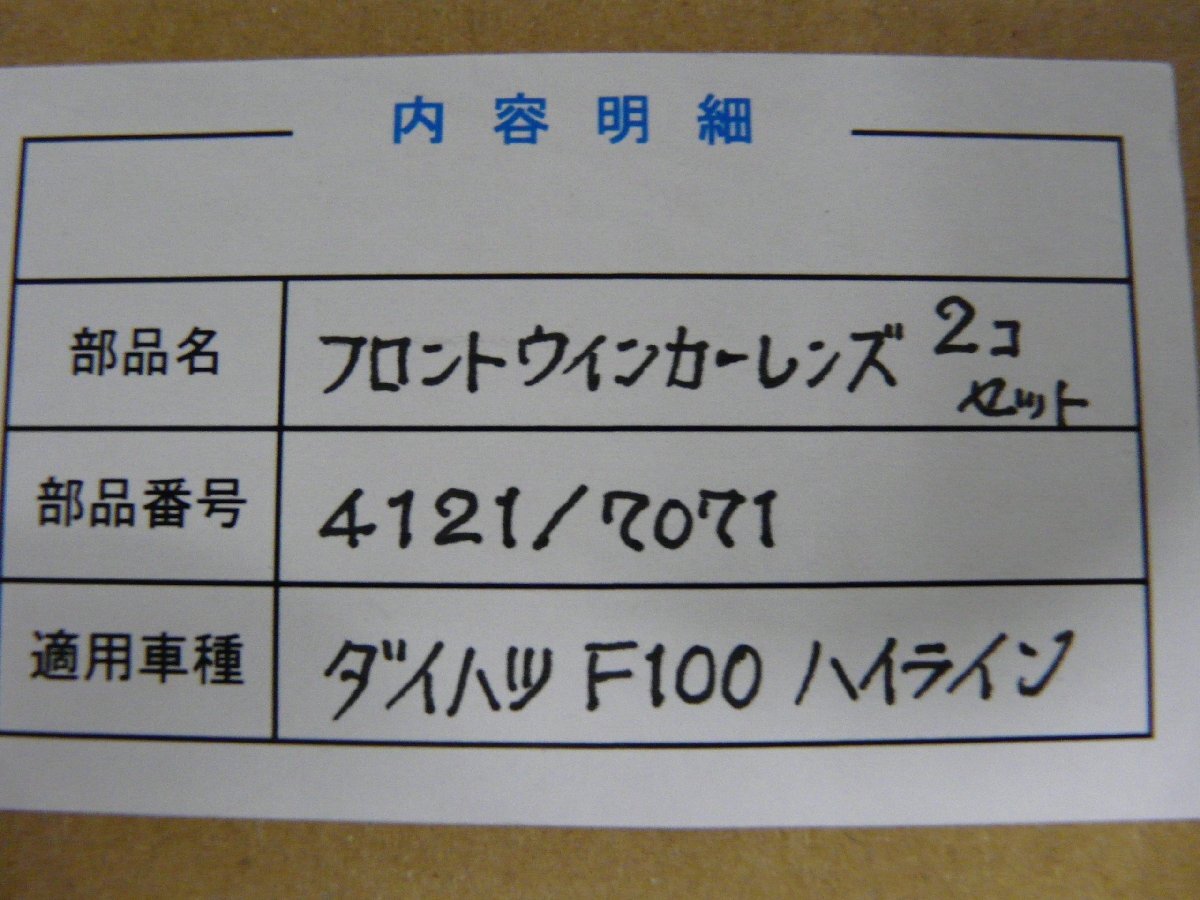 内容明細
部品名 フロントウインカーレンズ 2コ
セット
部品番号 4121/7071
適用車種 ダイハツ F100 ハイライン